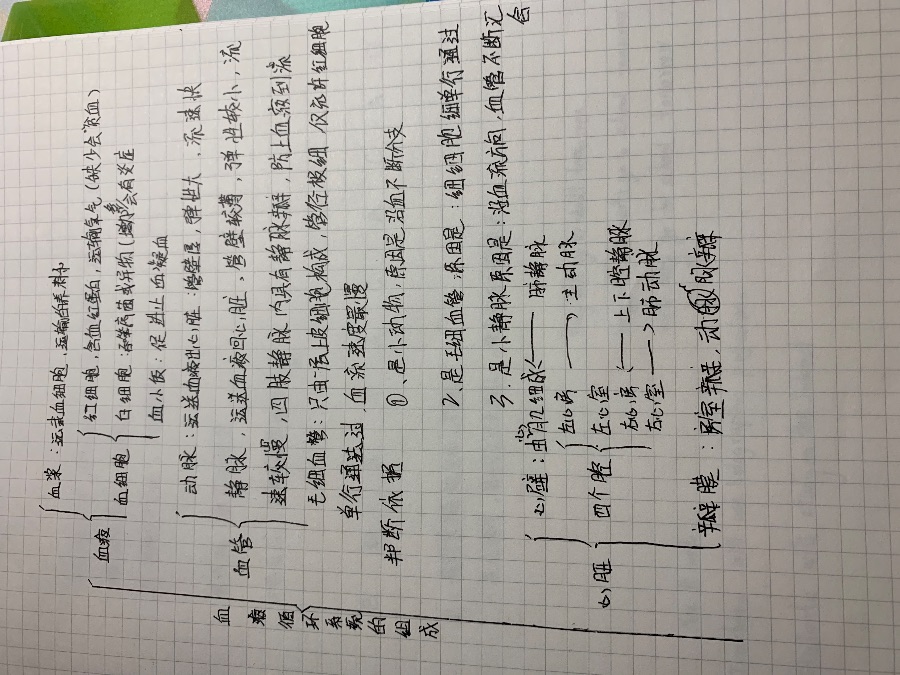 血液循环系统的组成
血液
血浆：运载血细胞，运输营养料
血细胞
红细胞，含血红蛋白，运输氧气（缺少会贫血）
白细胞：吞噬病菌或异物（增多会有炎症
血小板：促进止血凝血
血管
动脉：运送血液出心脏：管壁厚，弹性大，流速快
静脉，运送血液回心脏，管壁较薄，弹性较小，流
速较慢，四肢静脉内具有静脉瓣，防止血液到流
毛细血管：只由一层上皮细胞构成，管径极细，仅允许红细胞
单行通过，血流速度最慢
判断依据
①、是小动物，原因是沿血不断分支
2、是毛细血管：原因是：细细胞细单行通过
3、是小静脉原因是：沿血流方向，血管不断汇
合
心脏
心壁：由心肌细成
四个腔
左心房 ← 肺静脉
左心室 → 主动脉
右心房 ← 上下腔静脉
右心室 → 肺动脉
瓣膜：房室瓣，动脉瓣